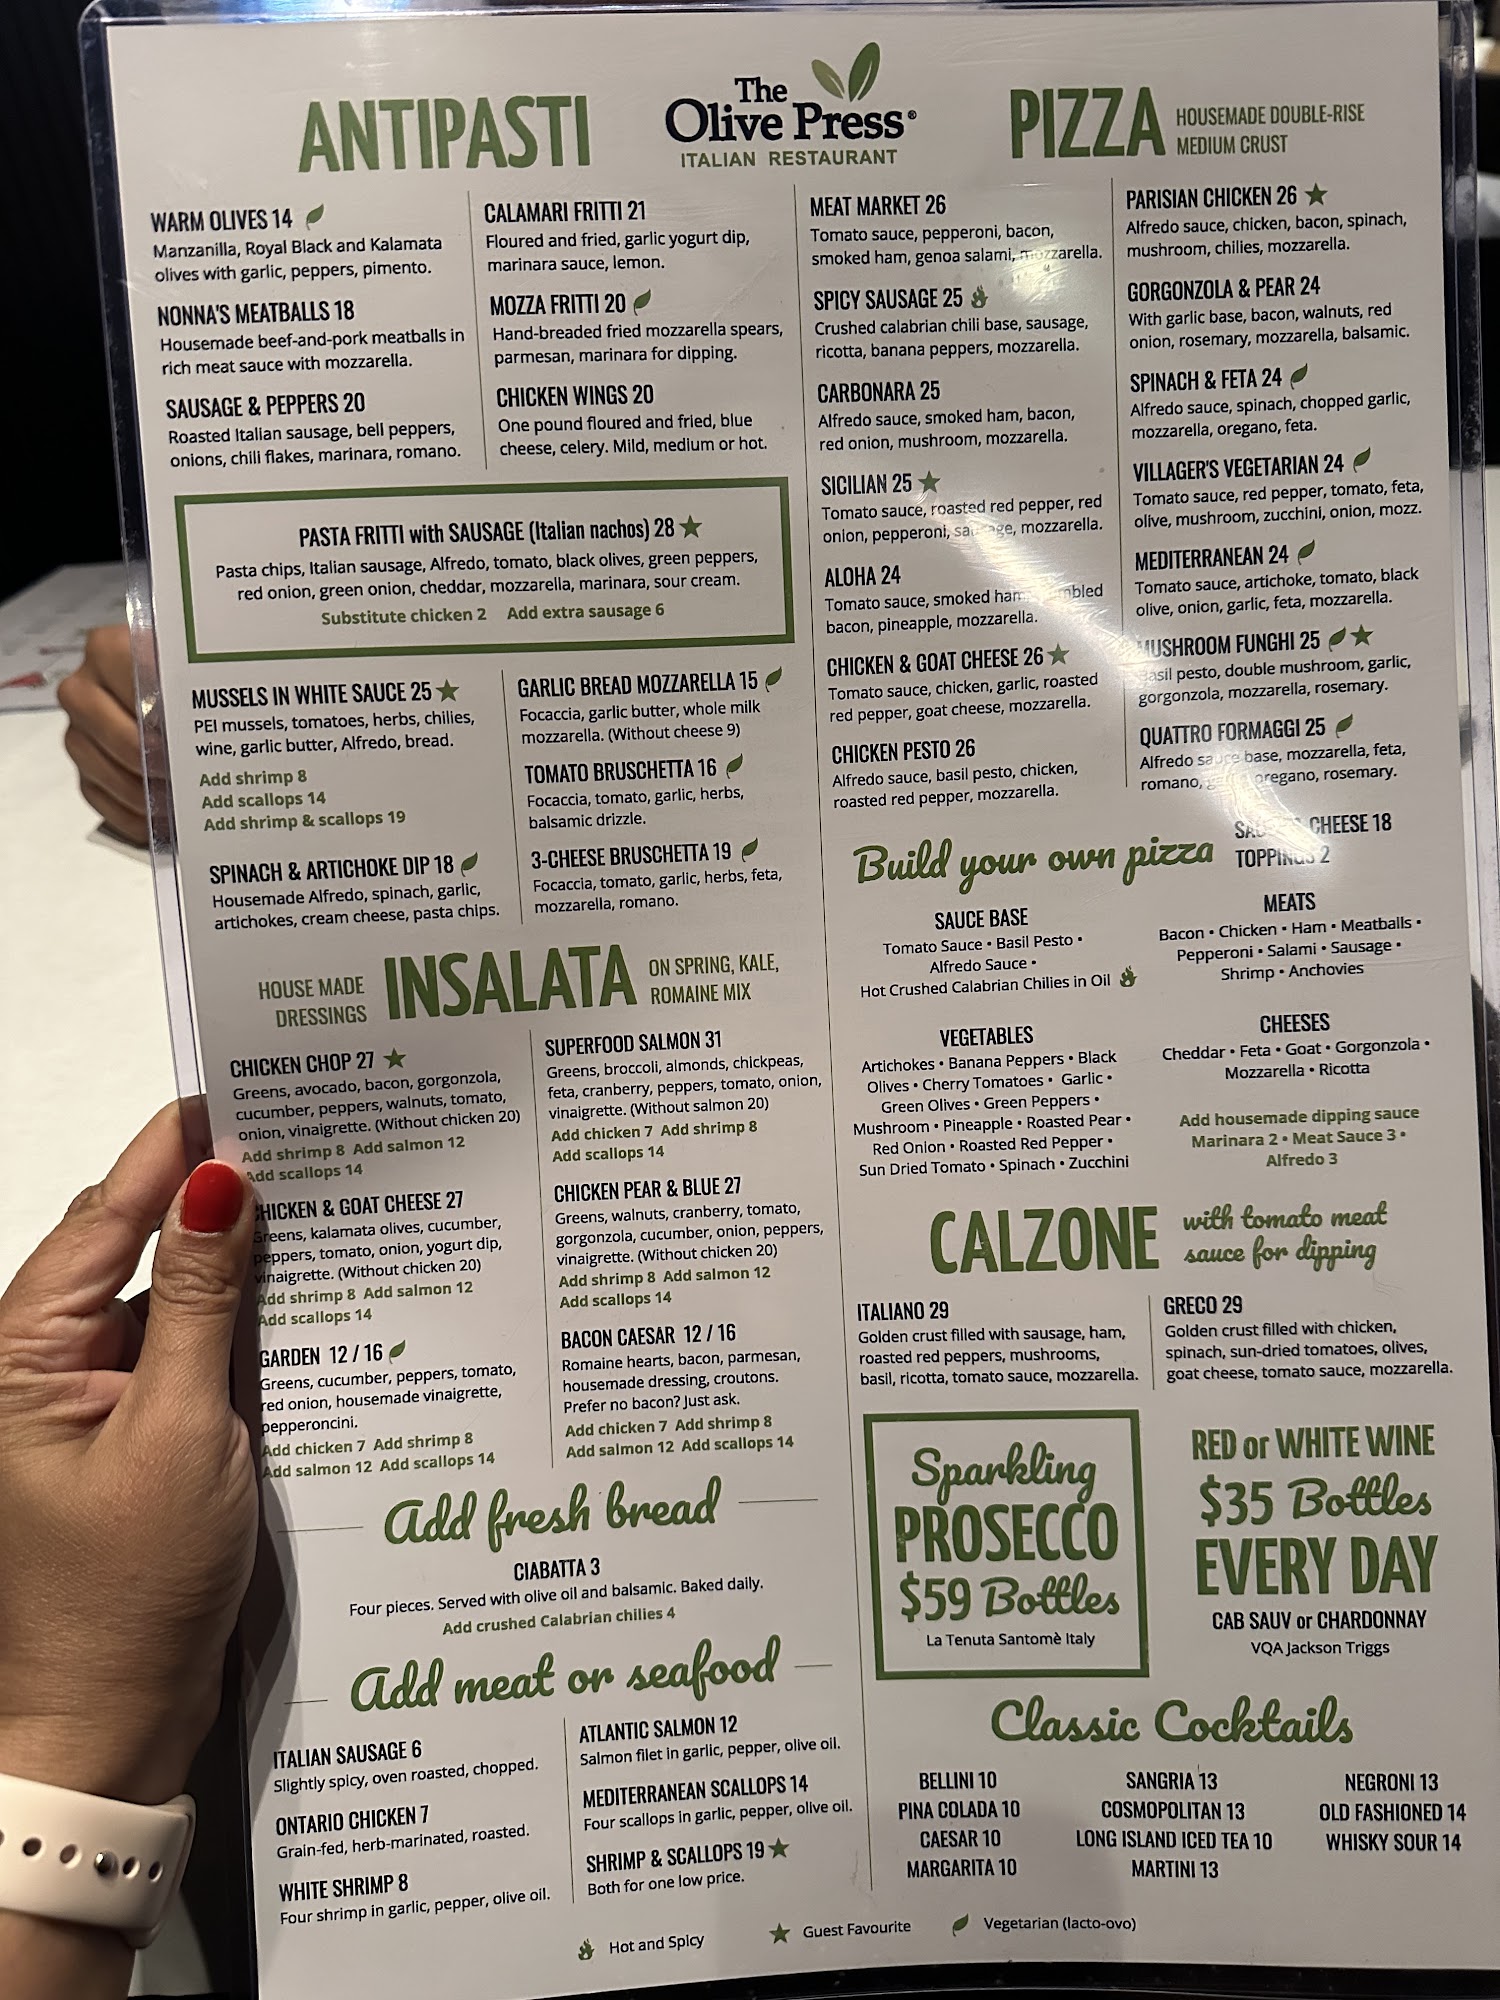 The
Olive Press®
ITALIAN RESTAURANT
ANTIPASTI
WARM OLIVES 14
Manzanilla, Royal Black and Kalamata
olives with garlic, peppers, pimento.
NONNA'S MEATBALLS 18
Housemade beef-and-pork meatballs in
rich meat sauce with mozzarella.
SAUSAGE & PEPPERS 20
Roasted Italian sausage, bell peppers,
onions, chili flakes, marinara, romano.
CALAMARI FRITTI 21
Floured and fried, garlic yogurt dip,
marinara sauce, lemon.
MOZZA FRITTI 20
Hand-breaded fried mozzarella spears,
parmesan, marinara for dipping.
CHICKEN WINGS 20
One pound floured and fried, blue
cheese, celery. Mild, medium or hot.
PASTA FRITTI with SAUSAGE (Italian nachos) 28
Pasta chips, Italian sausage, Alfredo, tomato, black olives, green peppers,
red onion, green onion, cheddar, mozzarella, marinara, sour cream.
Substitute chicken 2 Add extra sausage 6
MUSSELS IN WHITE SAUCE 25
PEI mussels, tomatoes, herbs, chilies,
wine, garlic butter, Alfredo, bread.
Add shrimp 8
Add scallops 14
Add shrimp & scallops 19
SPINACH & ARTICHOKE DIP 18
Housemade Alfredo, spinach, garlic,
artichokes, cream cheese, pasta chips.
GARLIC BREAD MOZZARELLA 15
Focaccia, garlic butter, whole milk
mozzarella. (Without cheese 9)
TOMATO BRUSCHETTA 16
Focaccia, tomato, garlic, herbs,
balsamic drizzle.
3-CHEESE BRUSCHETTA 19
Focaccia, tomato, garlic, herbs, feta,
mozzarella, romano.
HOUSE MADE
DRESSINGS
INSALATA
ON SPRING, KALE,
ROMAINE MIX
CHICKEN CHOP 27
Greens, avocado, bacon, gorgonzola,
cucumber, peppers, walnuts, tomato,
onion, vinaigrette. (Without chicken 20)
Add shrimp 8 Add salmon 12
Add scallops 14
CHICKEN & GOAT CHEESE 27
Greens, kalamata olives, cucumber,
peppers, tomato, onion, yogurt dip,
vinaigrette. (Without chicken 20)
Add shrimp 8 Add salmon 12
Add scallops 14
GARDEN 12 / 16
Greens, cucumber, peppers, tomato,
red onion, housemade vinaigrette,
pepperoncini.
Add chicken 7 Add shrimp 8
Add salmon 12 Add scallops 14
SUPERFOOD SALMON 31
Greens, broccoli, almonds, chickpeas,
feta, cranberry, peppers, tomato, onion,
vinaigrette. (Without salmon 20)
Add chicken 7 Add shrimp 8
Add scallops 14
CHICKEN PEAR & BLUE 27
Greens, walnuts, cranberry, tomato,
gorgonzola, cucumber, onion, peppers,
vinaigrette. (Without chicken 20)
Add shrimp 8 Add salmon 12
Add scallops 14
BACON CAESAR 12 / 16
Romaine hearts, bacon, parmesan,
housemade dressing, croutons.
Prefer no bacon? Just ask.
Add chicken 7 Add shrimp 8
Add salmon 12 Add scallops 14
Add fresh bread
CIABATTA 3
Four pieces. Served with olive oil and balsamic. Baked daily.
Add crushed Calabrian chilies 4
Add meat or seafood
ITALIAN SAUSAGE 6
Slightly spicy, oven roasted, chopped.
ONTARIO CHICKEN 7
Grain-fed, herb-marinated, roasted.
WHITE SHRIMP 8
Four shrimp in garlic, pepper, olive oil.
ATLANTIC SALMON 12
Salmon filet in garlic, pepper, olive oil.
MEDITERRANEAN SCALLOPS 14
Four scallops in garlic, pepper, olive oil.
SHRIMP & SCALLOPS 19
Both for one low price.
PIZZA
HOUSEMADE DOUBLE-RISE
MEDIUM CRUST
MEAT MARKET 26
Tomato sauce, pepperoni, bacon,
smoked ham, genoa salami, mozzarella.
SPICY SAUSAGE 25
Crushed calabrian chili base, sausage,
ricotta, banana peppers, mozzarella.
CARBONARA 25
Alfredo sauce, smoked ham, bacon,
red onion, mushroom, mozzarella.
SICILIAN 25
Tomato sauce, roasted red pepper, red
onion, pepperoni, sausage, mozzarella.
ALOHA 24
Tomato sauce, smoked ham,
bacon, pineapple, mozzarella.
CHICKEN & GOAT CHEESE 26
Tomato sauce, chicken, garlic, roasted
red pepper, goat cheese, mozzarella.
CHICKEN PESTO 26
Alfredo sauce, basil pesto, chicken,
roasted red pepper, mozzarella.
PARISIAN CHICKEN 26
Alfredo sauce, chicken, bacon, spinach,
mushroom, chilies, mozzarella.
GORGONZOLA & PEAR 24
With garlic base, bacon, walnuts, red
onion, rosemary, mozzarella, balsamic.
SPINACH & FETA 24
Alfredo sauce, spinach, chopped garlic,
mozzarella, oregano, feta.
VILLAGER'S VEGETARIAN 24
Tomato sauce, red pepper, tomato, feta,
olive, mushroom, zucchini, onion, mozz.
MEDITERRANEAN 24
Tomato sauce, artichoke, tomato, black
olive, onion, garlic, feta, mozzarella.
MUSHROOM FUNGHI 25
Basil pesto, double mushroom, garlic,
gorgonzola, mozzarella, rosemary.
QUATTRO FORMAGGI 25
Alfredo sauce base, mozzarella, feta,
romano, oregano, rosemary.
Build your own pizza
CHEESE 18
TOPPINGS 2
SAUCE BASE
Tomato Sauce • Basil Pesto •
Alfredo Sauce •
Hot Crushed Calabrian Chilies in Oil
VEGETABLES
Artichokes • Banana Peppers • Black
Olives • Cherry Tomatoes • Garlic •
Green Olives • Green Peppers •
Mushroom • Pineapple • Roasted Pear •
Red Onion • Roasted Red Pepper •
Sun Dried Tomato • Spinach • Zucchini
MEATS
Bacon • Chicken • Ham • Meatballs •
Pepperoni • Salami • Sausage •
Shrimp • Anchovies
CHEESES
Cheddar • Feta • Goat • Gorgonzola •
Mozzarella • Ricotta
Add housemade dipping sauce
Marinara 2 • Meat Sauce 3 •
Alfredo 3
CALZONE
with tomato meat
sauce for dipping
ITALIANO 29
Golden crust filled with sausage, ham,
roasted red peppers, mushrooms,
basil, ricotta, tomato sauce, mozzarella.
GRECO 29
Golden crust filled with chicken,
spinach, sun-dried tomatoes, olives,
goat cheese, tomato sauce, mozzarella.
Sparkling
PROSECCO
$59 Bottles
La Tenuta Santomè Italy
RED or WHITE WINE
$35 Bottles
EVERY DAY
CAB SAUV or CHARDONNAY
VQA Jackson Triggs
Classic Cocktails
BELLINI 10
PINA COLADA 10
CAESAR 10
MARGARITA 10
SANGRIA 13
COSMOPOLITAN 13
LONG ISLAND ICED TEA 10
MARTINI 13
NEGRONI 13
OLD FASHIONED 14
WHISKY SOUR 14
Hot and Spicy
Guest Favourite
Vegetarian (lacto-ovo)